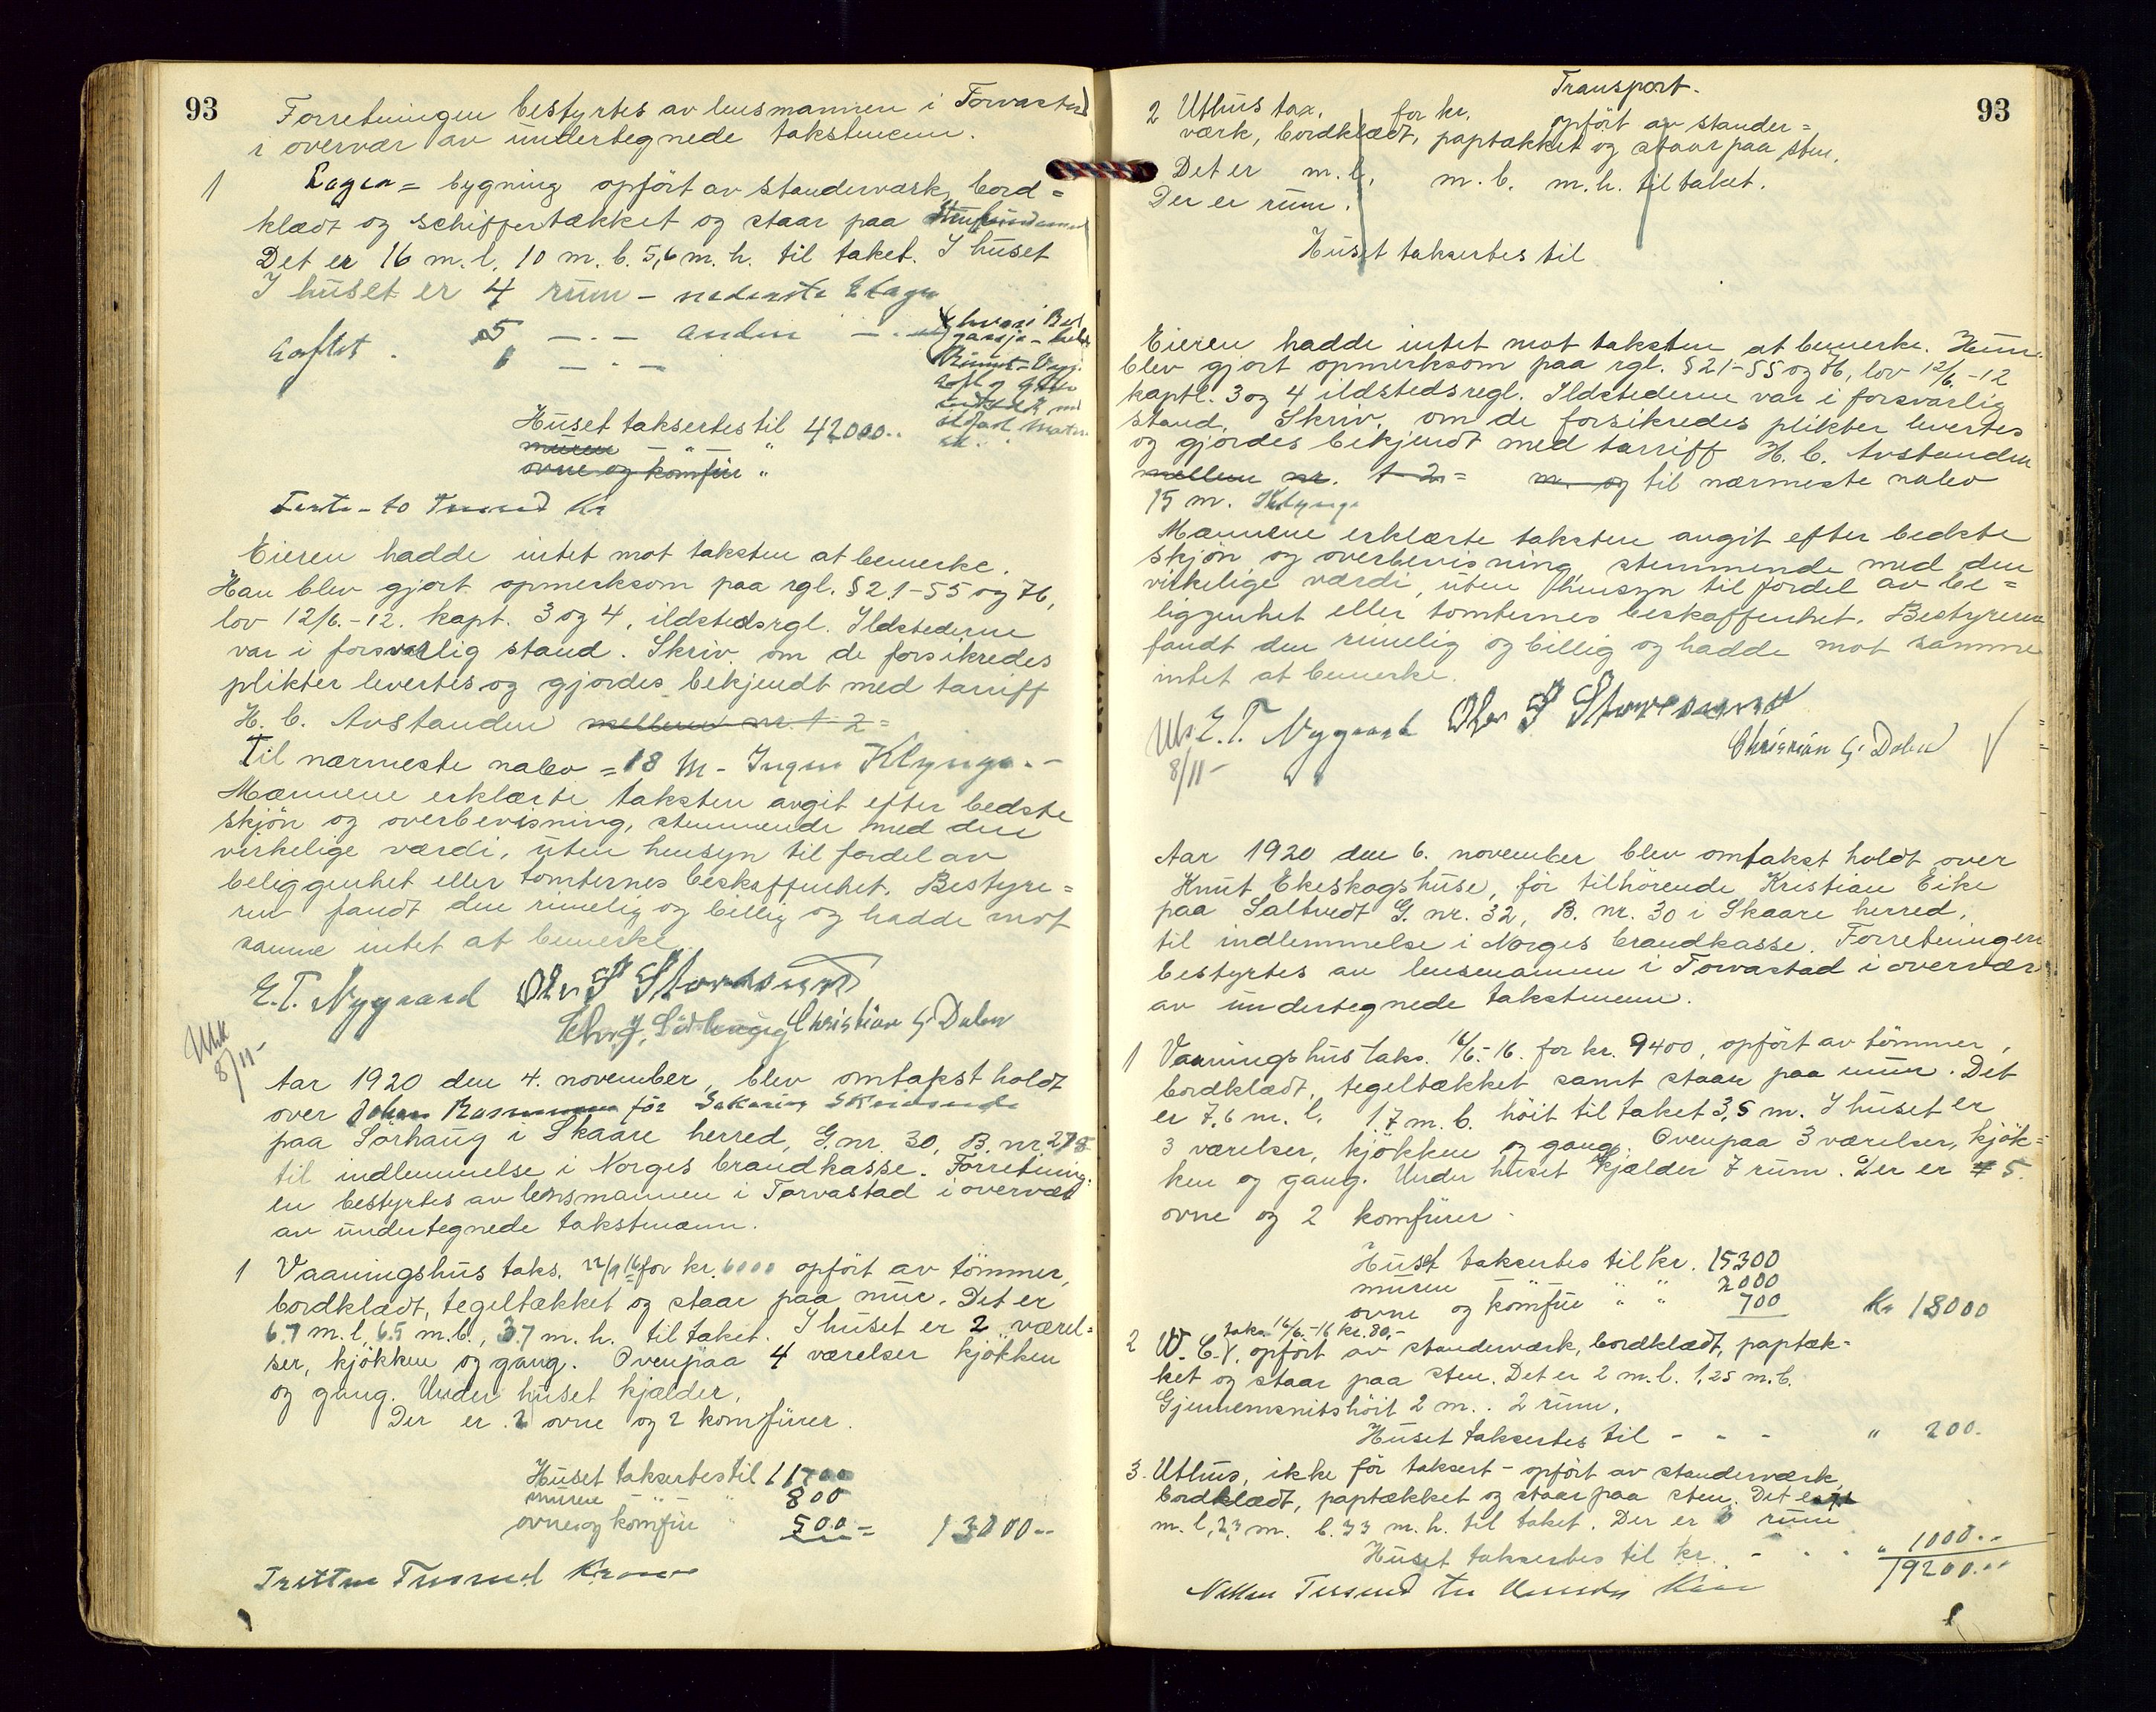 93
Forretningen bestyrtes av lensmannen i Torvastad
i overvær av undertegnede takstmenn.
1 Lager = bygning opført av standerværk, bord=
klædt og schiffertækket og staar paa
Det er 16 m. l. 10 m. b. 5,6 m. h. til taket. I huset
I huset er 4 rum - nederste Etage
5 — . — anden — . —
Loftet . 1 — . —
Huset taksertes til 42000..
muren — " — "
ovne og komfür "
Förti - to Tusend Kr
Eieren hadde intet mot taksten at bemerke.
Han blev gjort opmerksom paa rgl. § 21-55 og 76,
lov 12/6.-12. kapt. 3 og 4, ildstedsrgl. Ildstederne
var i forsvarlig stand. Skriv. om de forsikredes
plikter levertes og gjordes bekjendt med tarriff
H. b. Avstanden mellem nr. 1-2=
Til nærmeste nabo = 18 M - Ingen Klynge. -
Mænnene erklærte taksten avgit efter bedste
skjön og overbevisning, stemmende med den
virkelige værdi, uten hensyn til fordel av
beliggenhet eller tomternes beskaffenhet. Bestyre=
ren fandt den rimelig og billig og hadde mot
samme intet at bemerke.
E. T. Nygaard Olav S Storesund
Christian G. Dalen
8/11-
Aar 1920 den 4. november, blev omtakst holdt
over Johan Rasmussen för Sakarias
paa Sörhaug i Skaare herred, G. nr. 30, B. nr. 278
til indlemmelse i Norges brandkasse. Forretning=
en bestyrtes av lensmannen i Torvastad i overvær
av undertegnede takstmænn.
1 Vaaningshus taks. 22/9 16 for kr. 6000 opfört av tömmer,
bordklædt, tegeltækket og staar paa mur. Det er
6.7 m. l, 6.5 m. b., 3.7 m. h. til taket. I huset er 2 værel=
ser, kjökken og gang. Ovenpaa 4 værelser kjökken
og gang. Under huset kjælder,
Der er 2 ovne og 2 komfürer.
Huset taksertes til 11700
muren — " — " 800
ovne og komfür " 500 = 13000..
Tretten Tusend Kroner
93
Transport.
2 Uthus tax. for kr. opfört av stander=
værk, bordklædt, paptækket og staar paa sten.
Det er m. l, m. b. m. h. til taket.
Der er rum.
Huset taksertes til
Eieren hadde intet mot taksten at bemerke. Hun
blev gjort opmerksom paa rgl. § 21-55 og 76, lov 12/6.-12
kaptl. 3 og 4 ildstedsregl. Ildstederne var i forsvarlig
stand. Skriv. om de forsikredes plikter levertes
og gjordes bekjendt med tarriff H. b. Avstanden
mellem nr. 1-2= m. og til nærmeste nabo
15 m. Klynge
Mænnene erklærte taksten avgit efter bedste
skjön og overbevisning, stemmende med den
virkelige værdi, uten hensyn til fordel av be=
liggenhet eller tomternes beskaffenhet. Bestyreren
fandt den rimelig og billig og hadde mot samme
intet at bemerke.
E. T. Nygaard Olav S Storesund
Christian G. Dalen
8/11-
Aar 1920 den 6. november blev omtakst holdt over
Knut Ekeskogshuse, för tilhörende Kristian Eike
paa Saltvedt G. nr. 32, B. nr. 30 i Skaare herred,
til indlemmelse i Norges brandkasse. Forretningen
bestyrtes av lensmannen i Torvastad i overvær
av undertegnede takstmenn.
1 Vaaningshus taks. 16/6.-16. for kr. 9400, opfört av tömmer,
bordklædt, tegeltækket samt staar paa mur. Det
er 7,6 m. l. 7.7 m. b. höit til taket 3,5 m. I huset er
3 værelser, kjökken og gang. Ovenpaa 3 værelser, kjök=
ken og gang. Under huset kjælder 7 rum. Der er 5.
ovne og 2 komfürer.
Huset taksertes til kr. 15300
muren — " — " " 2000
ovne og komfür " " 700 Kr 18000
taks. 16/6.-16 kr. 80,-
2 W. C., opfört av standerværk, bordklædt, paptæk=
ket og staar paa sten. Det er 2 m. l. 1,25 m. b.
Gjennemsnitshöit 2 m.. 2 rum,
Huset taksertes til - - - " 200.
3. Uthus, ikke för taksert - opfört av standerværk,
bordklædt, paptækket og staar paa sten. Det er
m. l, 2,3 m. b. 3,3 m. h. til taket. Der er rum
Huset taksertes til kr. - - - " 1000..
19200...
Nitten Tusend to Hundre Kroner